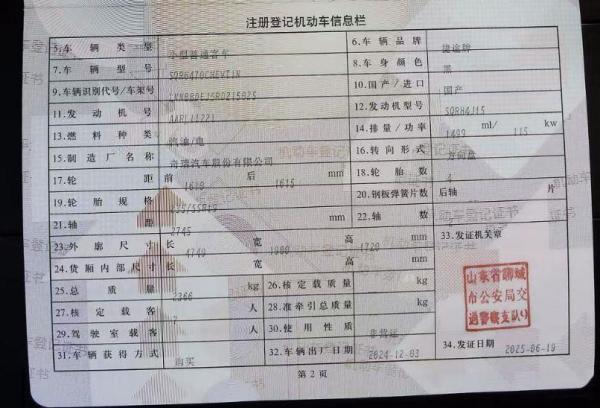 注册登记机动车信息栏
5.车辆类型 小型普通客车 6.车辆品牌 捷途牌
7.车辆型号 8.车身颜色 黑
9.车辆识别代号/车架号 10.国产/进口 国产
11.发动机号 12.发动机型号 SQRH4J15
13.燃料种类 汽油/电 14.排量/功率 1499 ml/ 115 kw
15.制造厂名称 奇瑞汽车股份有限公司 16.转向形式 方向盘
17.轮距 前 1619 后 1615 mm 18.轮胎数 4
19.轮胎规格 20.钢板弹簧片数 后轴 片
21.轴距 2745 mm 22.轴数
23.外廓尺寸 长 4740 宽 1900 高 1720 mm 33.发证机关章
24.货厢内部尺寸 长 宽 高 mm
25.总质量 2366 kg 26.核定载质量 kg
27.核定载客 人 28.准牵引总质量 kg
29.驾驶室载客 人 30.使用性质 非营运
山东省聊城
市公安局交
通警察支队
31.车辆获得方式 购买 32.车辆出厂日期 2024-12-03 34.发证日期 2025-06-19
第2页